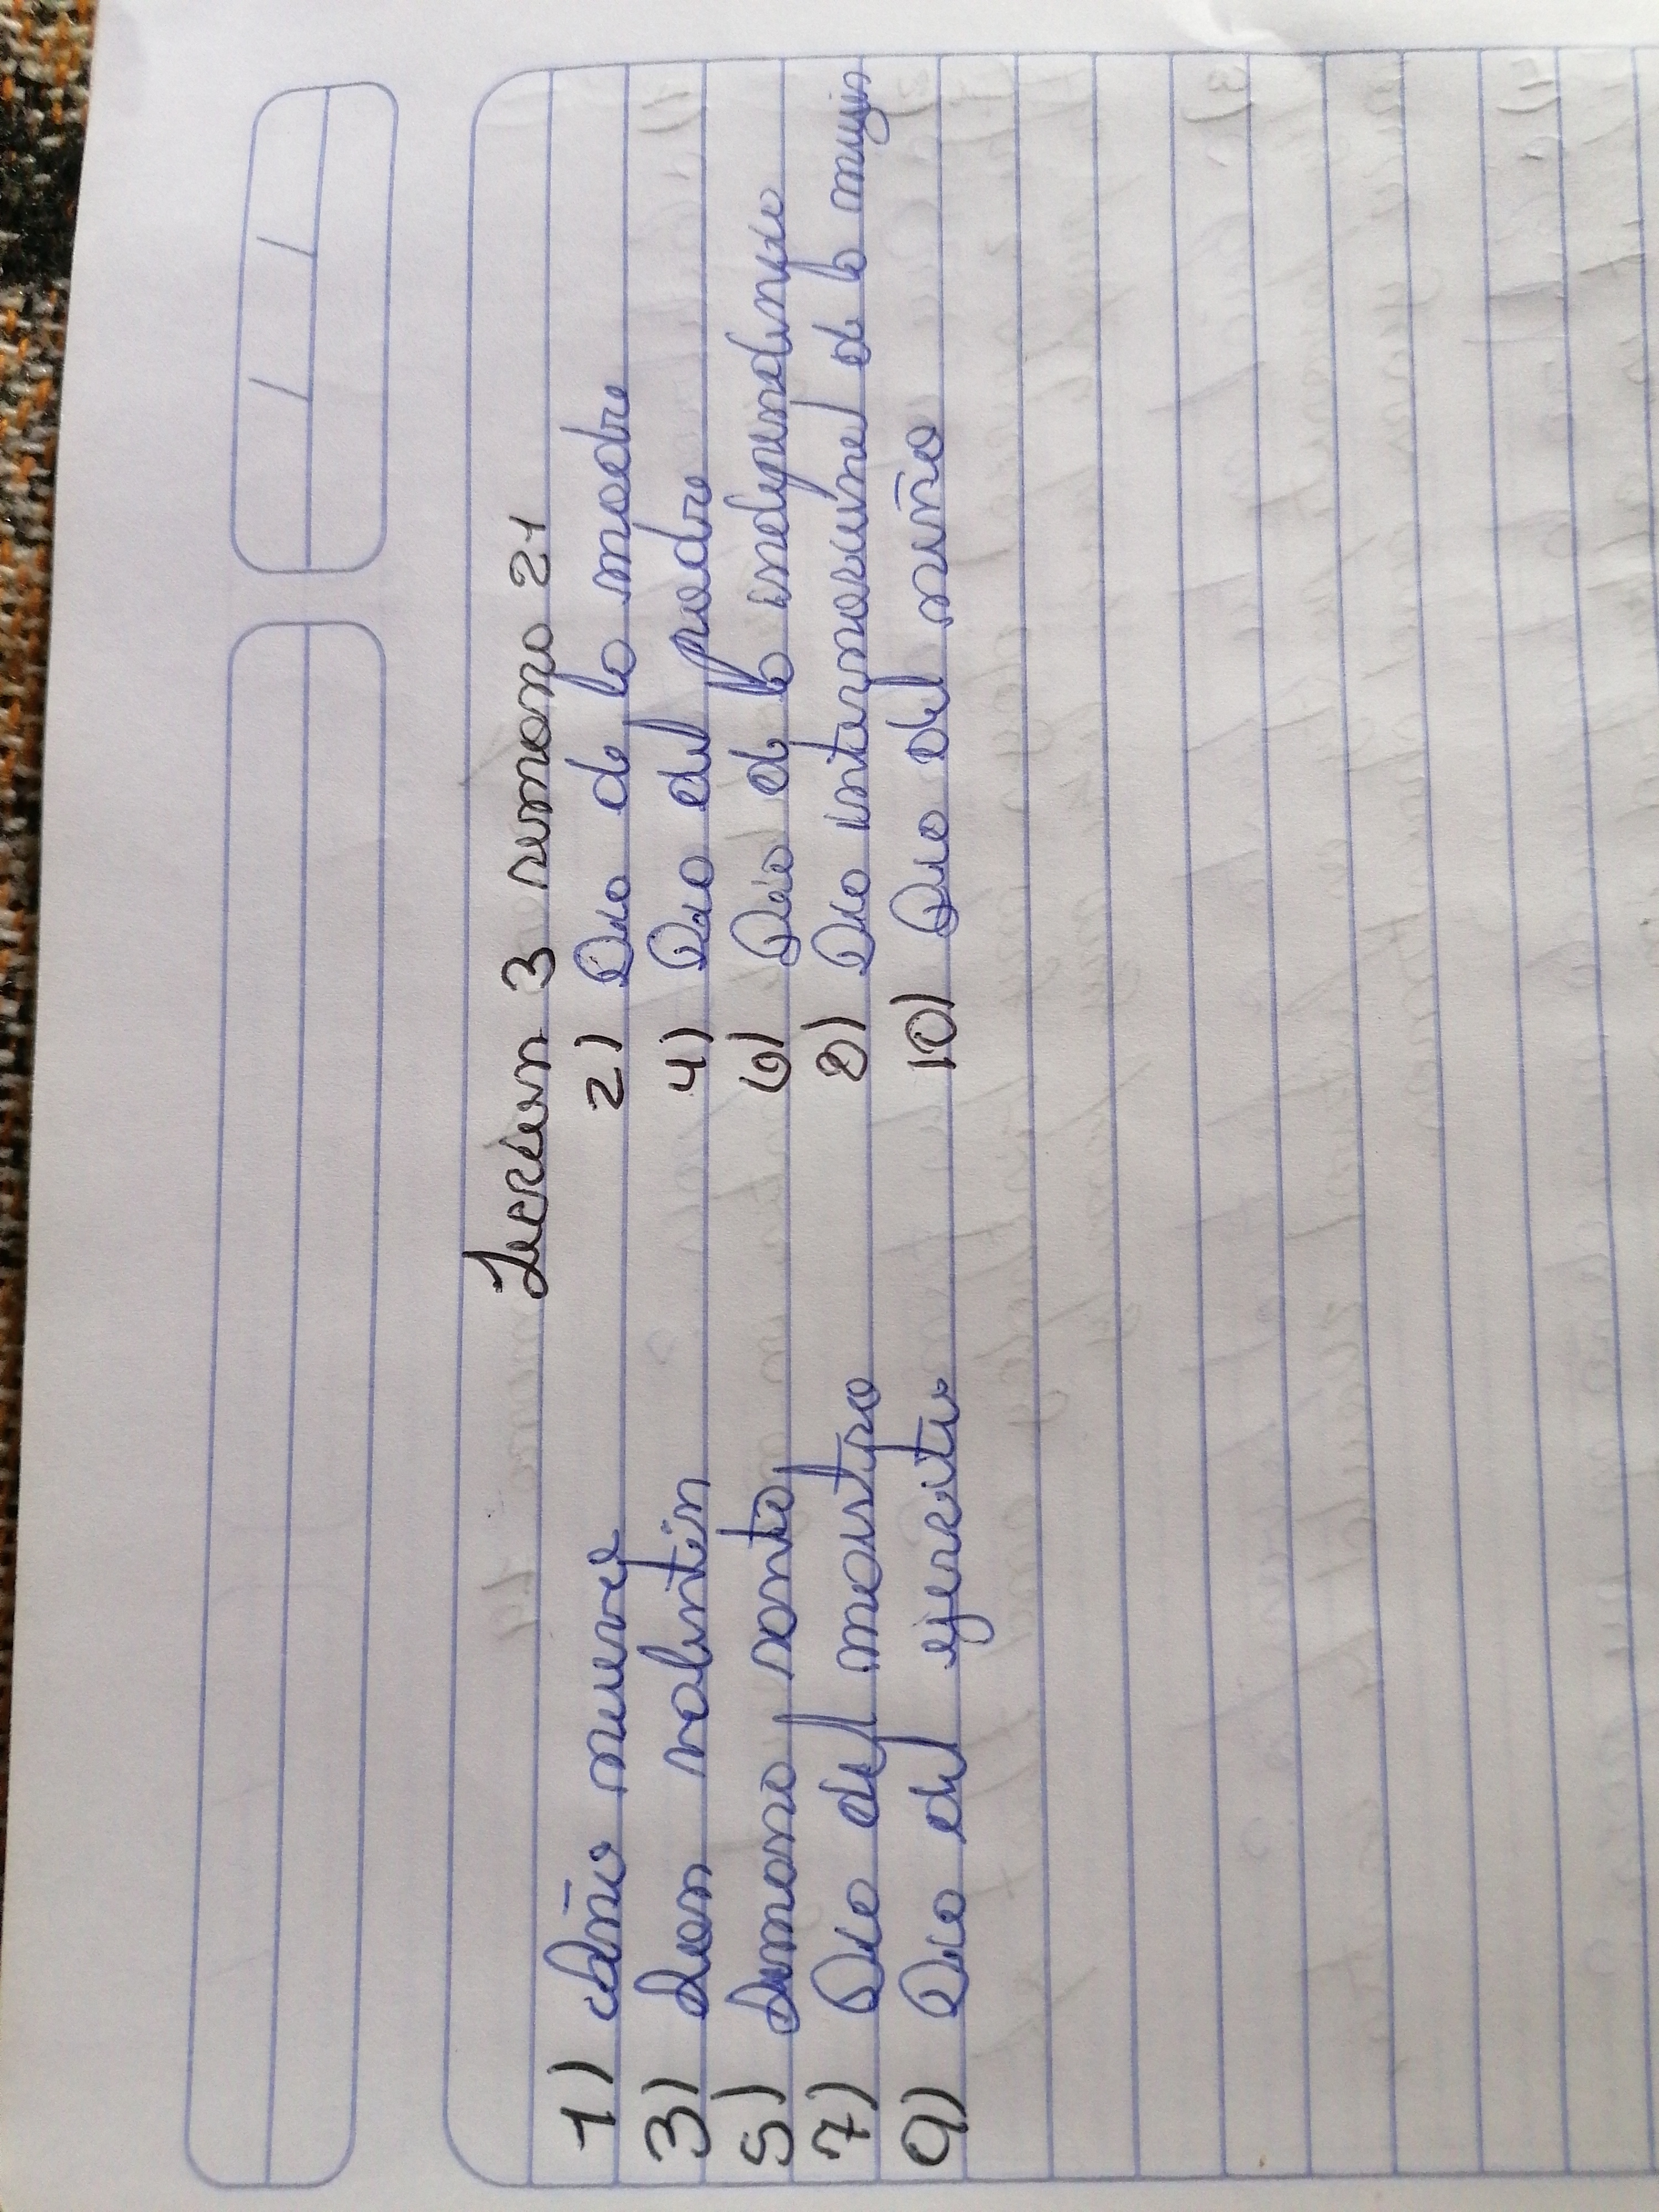 Leccion 3 semana 21
1) Año nuevo 2) Dia de la madre
3) San valentin 4) Dia del padre
5) Semana santa 6) Dia de la independencia
7) Dia del maestro 8) Dia internacional de la mujer
9) Dia del ejercito 10) Dia del niño